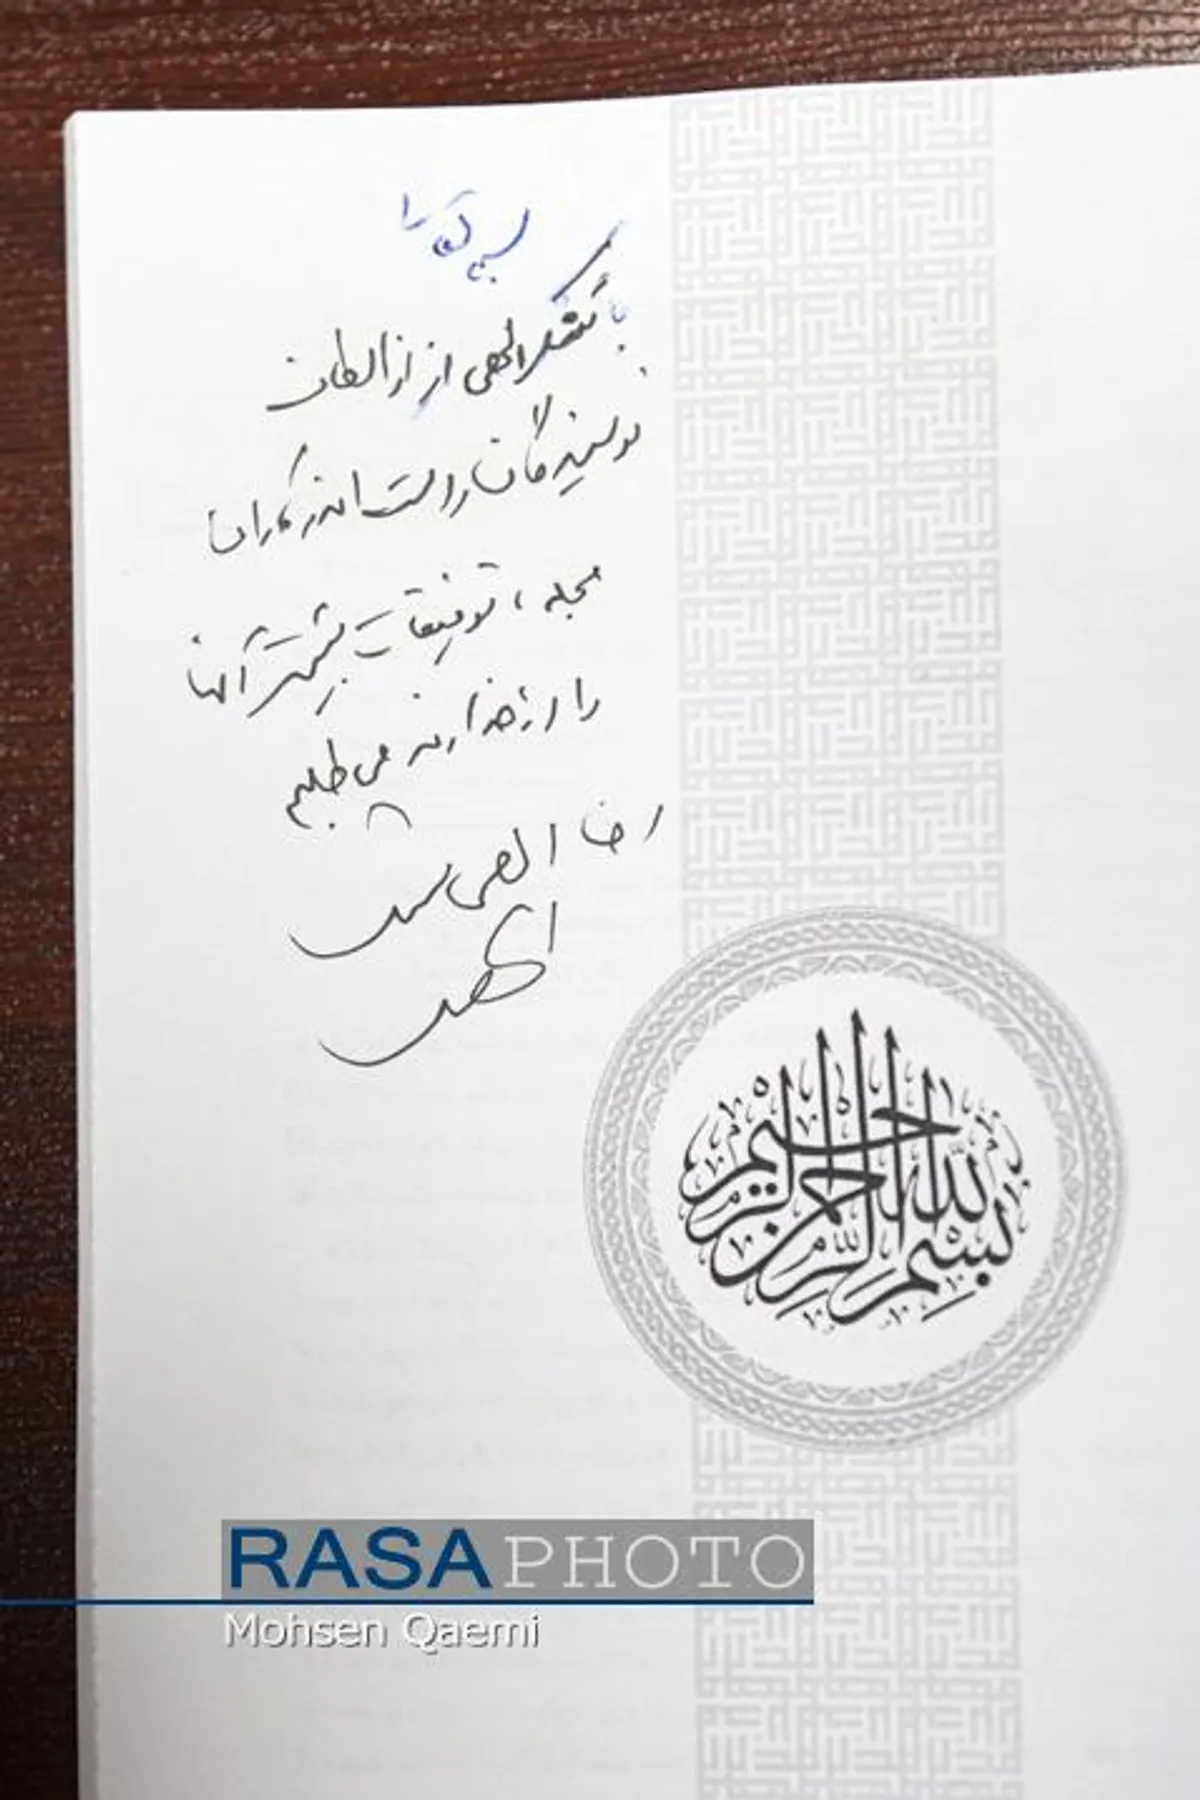 بسمه تعالی
با تشکر الهی از
نویسندگان و دست اندرکاران
مجله، توفیقات بیشتر آنها
را از خداوند می طلبیم
رضا
بسم الله الرحمن الرحیم
RASA PHOTO
Mohsen Qaemi